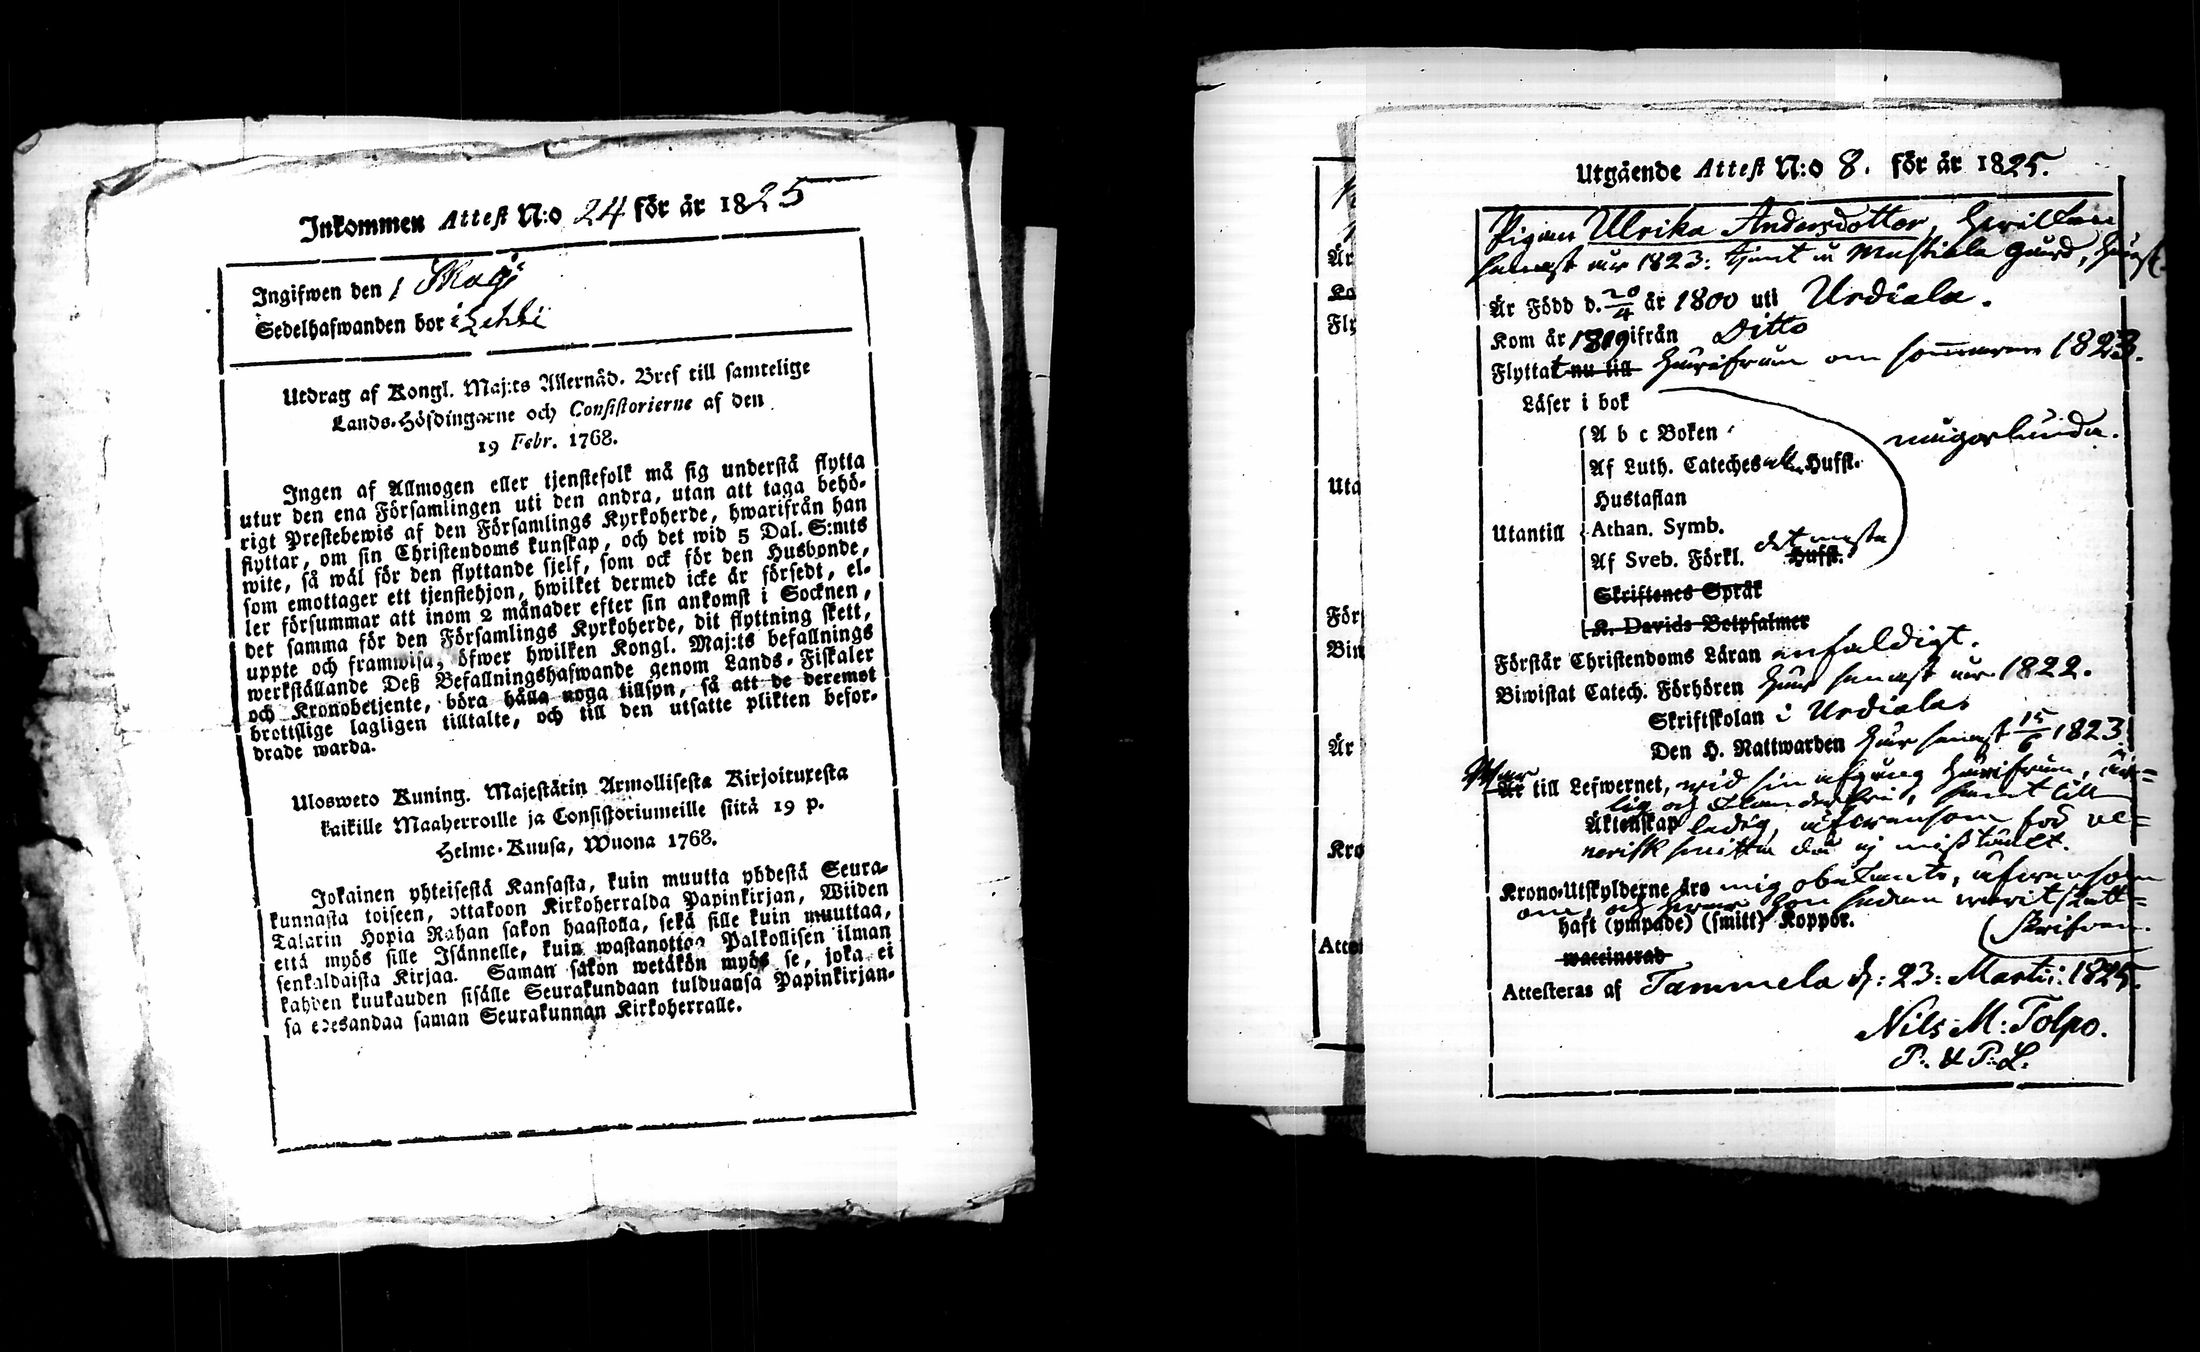 Inkommen Attest N:o 24 för år 1825
Ingifwen den 1 Maji
Sedelhafwanden bor i
Utdrag af Kongl. Maj:ts Allernåd. Bref till samtelige
Lands-Höfdingarne och Consistorierne af den
19 Febr. 1768.
Ingen af Allmogen eller tjenstefolk må sig understå flytta
utur den ena Församlingen uti den andra, utan att taga behö-
rigt Prestebewis af den Församlings Kyrkoherde, hwarifrån han
flyttar, om sin Christendoms kunskap, och det wid 5 Dal. S:mts
wite, så wäl för den flyttande sjelf, som ock för den Husbonde,
som emottager ett tjenstehjon, hwilket dermed icke är försedt, el-
ler försummar att inom 2 månader efter sin ankomst i Socknen,
det samma för den Församlings Kyrkoherde, dit flyttning skett,
uppte och framwisa, öfwer hwilken Kongl. Maj:ts befallnings
werkställande Deß Befallningshafwande genom Lands-Fiskaler
och Kronobetjente, böra hålla noga tillsyn, så att de deremot
brottslige lagligen tilltalte, och till den utsatte plikten befor-
drade warda.
Ulosweto Kuning. Majestätin Armollisesta Kirjoituxesta
kaikille Maaherroille ja Consistoriumeille siitä 19 p.
Helme-Kuusa, Wuona 1768.
Jokainen yhteisestä Kansasta, kuin muutta yhdestä Seura-
kunnasta toiseen, ottakoon Kirkoherralda Papinkirjan, Wiiden
Talarin Hopia Rahan sakon haastolla, sekä sille kuin muuttaa,
että myös sille Isännelle, kuin wastanottaa Palkollisen ilman
senkaldaista Kirjaa. Saman sakon wetäkön myös se, joka ei
kahden kuukauden sisälle Seurakundaan tulduansa Papinkirjan-
sa edesandaa saman Seurakunnan Kirkoherralle.
Utgående Attest N:o 8. för år 1825.
Pigan Ulrika Andersdotter, hwilken
senast år 1823: tjent å Mustiala gård,
Är Född d. 20/4 år 1800 uti Urdiala.
Kom år 1819 ifrån Ditto
Flyttat nu till härifrån om sommaren 1823.
Läser i bok
A b c Boken
någorlunda.
Af Luth. Cateches Hufst.
Hustaflan
Utantill Athan. Symb.
Af Sveb. Förkl. det mesta Hufst.
Skriftenes Språk
K. Davids Botpsalmer
Förstår Christendoms Läran enfaldigt.
Biwistat Catech. Förhören här senast år 1822.
Skriftskolan i Urdiala
Den H. Nattwarden här senast 15/6 1823.
War Är till Lefwernet, wid sin afgång härifrån, är=
lig och samt till
Äktenskap ledig, äfwensom för ve=
nerisk smitta då ej mißtänkt.
Krono-Utskylderne äro mig obekante, äfwensom
om, och hwar hon sedan warit skatt=
haft (ympade) (smitt) Koppor. skrifven.
waccinerad
Attesteras af Tammela d: 23: Martii: 1825.
Nils M: Tolpo.
P. & P. L.
Är
Fly
Uta
För
Bin
Är
Kro
Attes